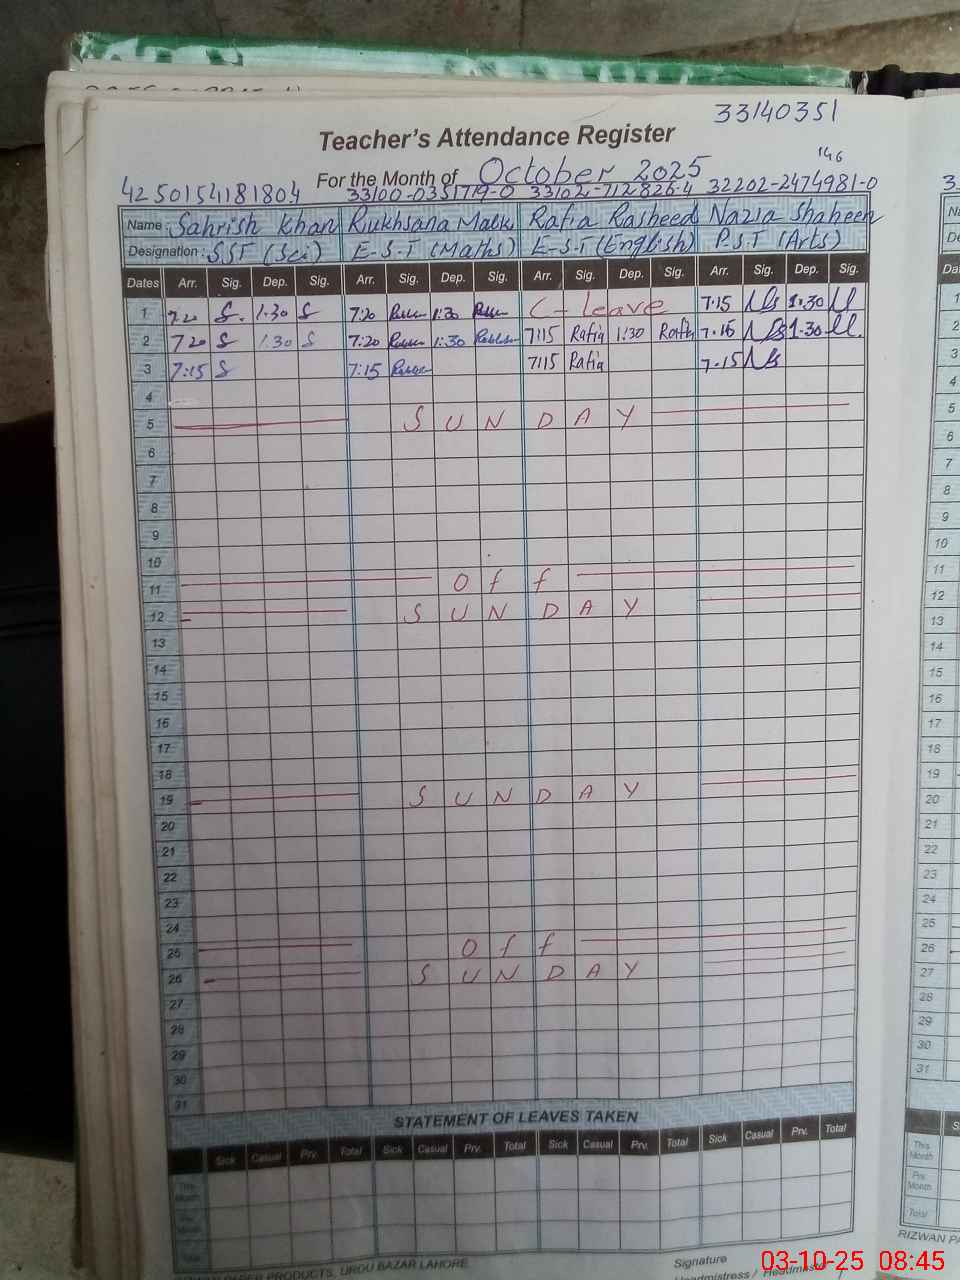 33140351
Teacher's Attendance Register
146
For the Month of October 2025
4250154181804 33100-0351719-0 33102-712826-4 32202-2474981-0
Name : Sahrish Khan Rukhsana Malik Rafia Rasheed Nazia Shaheen
Designation : SST (Sci) E-S-T (Maths) E-S-T (English) P.S.T (Arts)
Dates Arr. Sig. Dep. Sig. Arr. Sig. Dep. Sig. Arr. Sig. Dep. Sig. Arr. Sig. Dep. Sig.
1 7.20 S. 1.30 S 7:20 1:30 C-leave 7.15 Ns 1.30
2 7.20 S 1.30 S 7:20 1:30 7:15 Rafia 1:30 Rafia 7.15 Ns 1.30
3 7:15 S 7:15 7:15 Rafia 7.15 Ns
4
5 SUNDAY
6
7
8
9
10
11 Off
12 SUNDAY
13
14
15
16
17
18
19 SUNDAY
20
21
22
23
24
25 Off
26 SUNDAY
27
28
29
30
31
STATEMENT OF LEAVES TAKEN
Sick Casual Prv. Total Sick Casual Prv. Total Sick Casual Prv. Total Sick Casual Prv. Total
This Month
Pre. Month
Total
PAPER PRODUCTS, URDU BAZAR LAHORE.
Signature
Headmistress / Headmaster
1
2
3
4
5
6
7
8
9
10
11
12
13
14
15
16
17
18
19
20
21
22
23
24
25
26
27
28
29
30
31
This Month
Pre. Month
Total
RIZWAN PA
03-10-25 08:45